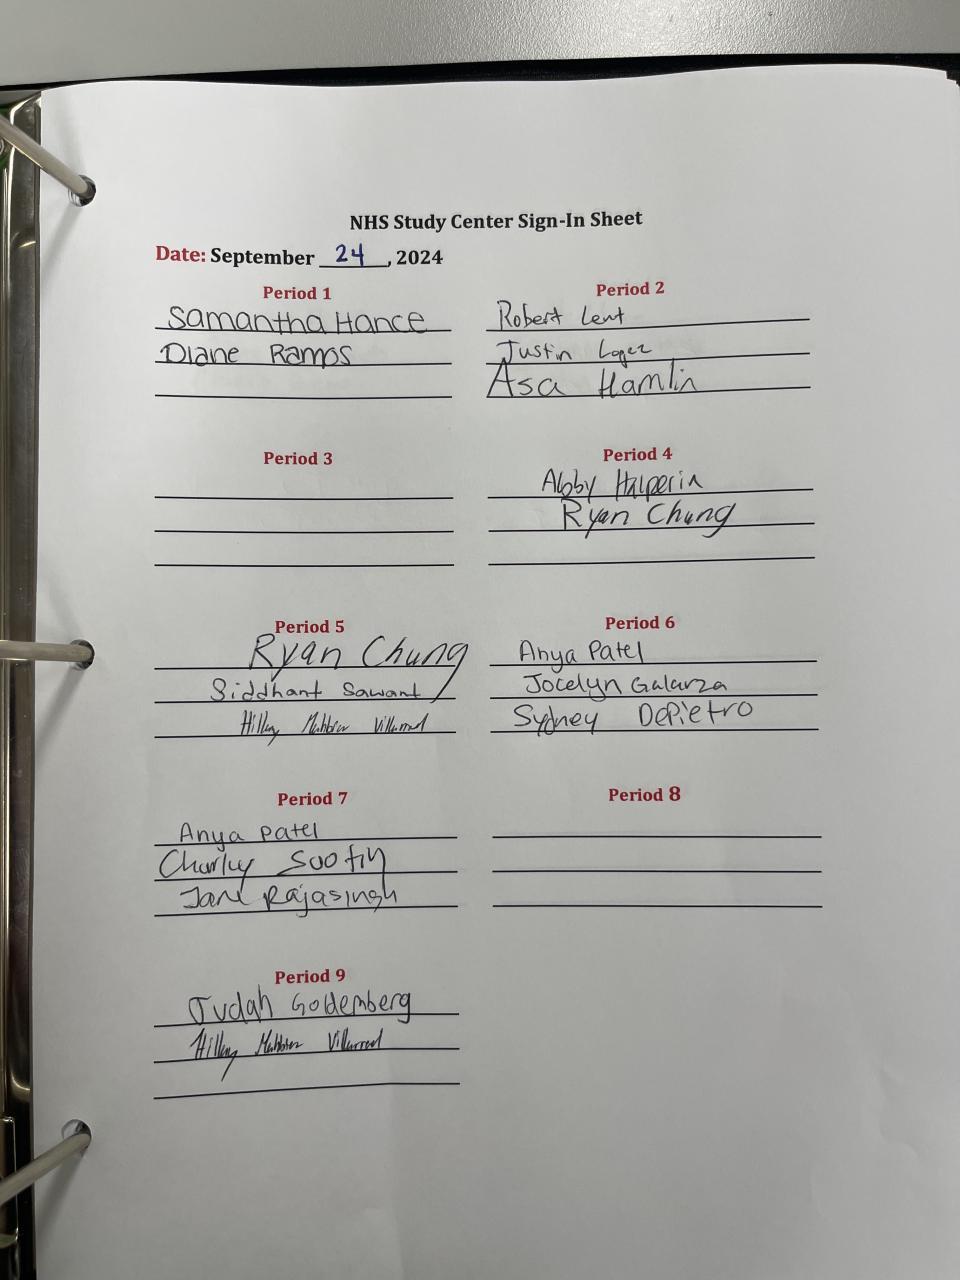 NHS Study Center Sign-In Sheet
Date: September 24, 2024
Period 1
Samantha Hance
Diane Ramos
Period 2
Robert Lent
Justin
Asa Hamlin
Period 3
Period 4
Abby Halperin
Ryan Chung
Period 5
Ryan Chung
Siddhant Sawant
Period 6
Anya Patel
Jocelyn Galarza
Sydney DePietro
Period 7
Anya Patel
Charley
Jane Rajasingh
Period 8
Period 9
Judah Goldemberg